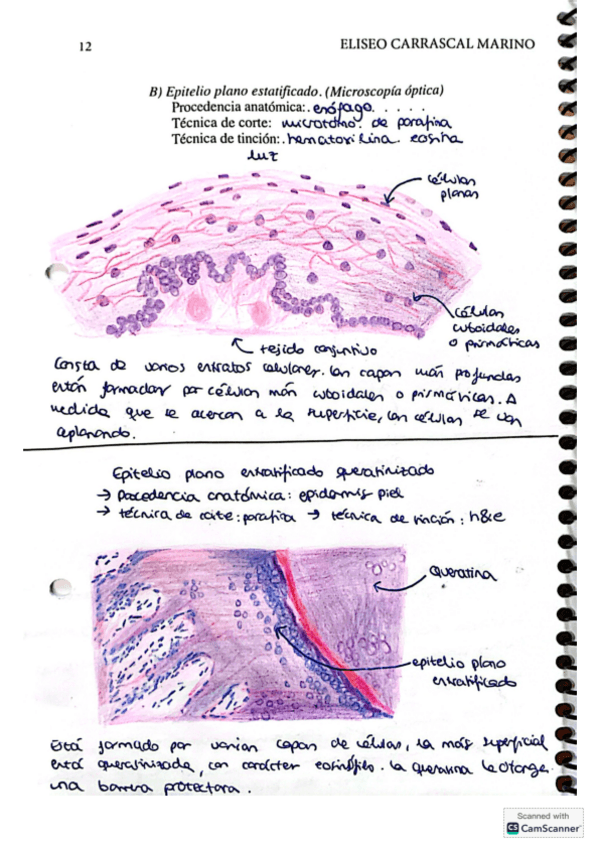 12
ELISEO CARRASCAL MARINO
B) Epitelio plano estatificado. (Microscopía óptica)
Procedencia anatómica:. esófago. . . . .
Técnica de corte: microtomo. de parafina
Técnica de tinción:. hematoxilina. eosina
luz
células
planas
células
cuboidales
o prismáticas
tejido conjuntivo
Consta de varios estratos celulares. Las capas más profundas
están formadas por células más cuboidales o prismáticas. A
medida que se acercan a la superficie, las células se van
aplanando.
Epitelio plano estratificado queratinizado
→ Procedencia anatómica: epidermis piel
→ técnica de corte: parafina → técnica de tinción: h&e
Queratina
epitelio plano
estratificado
Está formado por varias capas de células, la más superficial
está queratinizada, con carácter eosinófilo. La queratina le otorga
una barrera protectora.
Scanned with
CS CamScanner